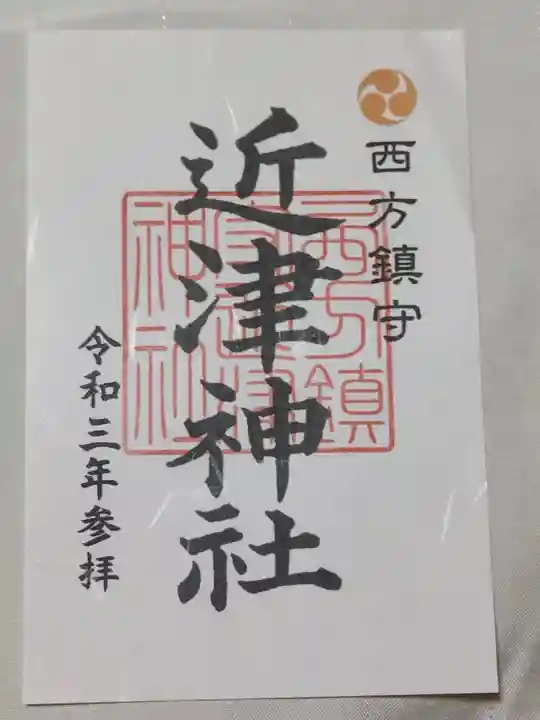 西方鎮守
近津神社
令和三年参拝
西方鎮
守近津
神社